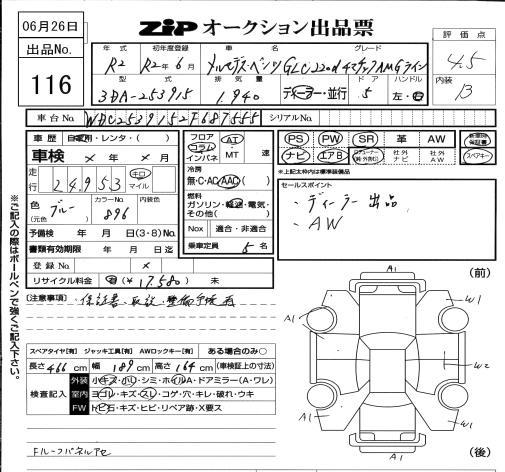 06月26日
ZIP オークション出品票
出品No.
116
年式
初年度登録
車名
グレード
評価点
R2
R2年6月
メルセデス・ベンツ GLC220d 4マチック AMGライン
4.5
型式
排気量
ドア
ハンドル
内装
3DA-253915
1,940
ディーラー・並行
5
左・右
B
車台No.
WDC2539152F687555
シリアルNo.
車歴 自家用・レンタ・( )
車検 × 年 × 月
走行 24,953 キロ マイル
色(元色) ブルー カラーNo. 896 内装色
予備検 年 月 日(3・8)No.
書類有効期限 年 月 日迄
登録No. ×
リサイクル料金 (¥17,580) 未
フロア コラム インパネ AT MT 速
冷房 無・C・AC(AAC)
燃料 ガソリン・軽油・電気・その他( )
Nox 適合・非適合
乗車定員 5 名
PS PW SR 革 AW 新車時保証書
ナビ エアB 社外ナビ 社外AW スペアキー
*上記太枠内は標準装備品
セールスポイント
・ディーラー出品
・AW
注意事項: 保証書・取説・整備手帳有
※ご記入の際はボールペンで強くご記入下さい。
スペアタイヤ[有] ジャッキ工具[有] AWロックキー[有] ある場合のみ○
長さ 466 cm 幅 189 cm 高さ 164 cm (車検証上の寸法)
検査記入
外装 小キズ・小凹・シミ・ホイルA・ドアミラー(A・ワレ)
室内 ヨゴレ・キズ・スレ・コゲ・穴・キレ・破れ・ウキ
FW トビ石・キズ・ヒビ・リペア跡・X要ス
Fルーフパネルアセ
(前)
A1
W1
A1
A1
W2
A1
W1
A1
(後)